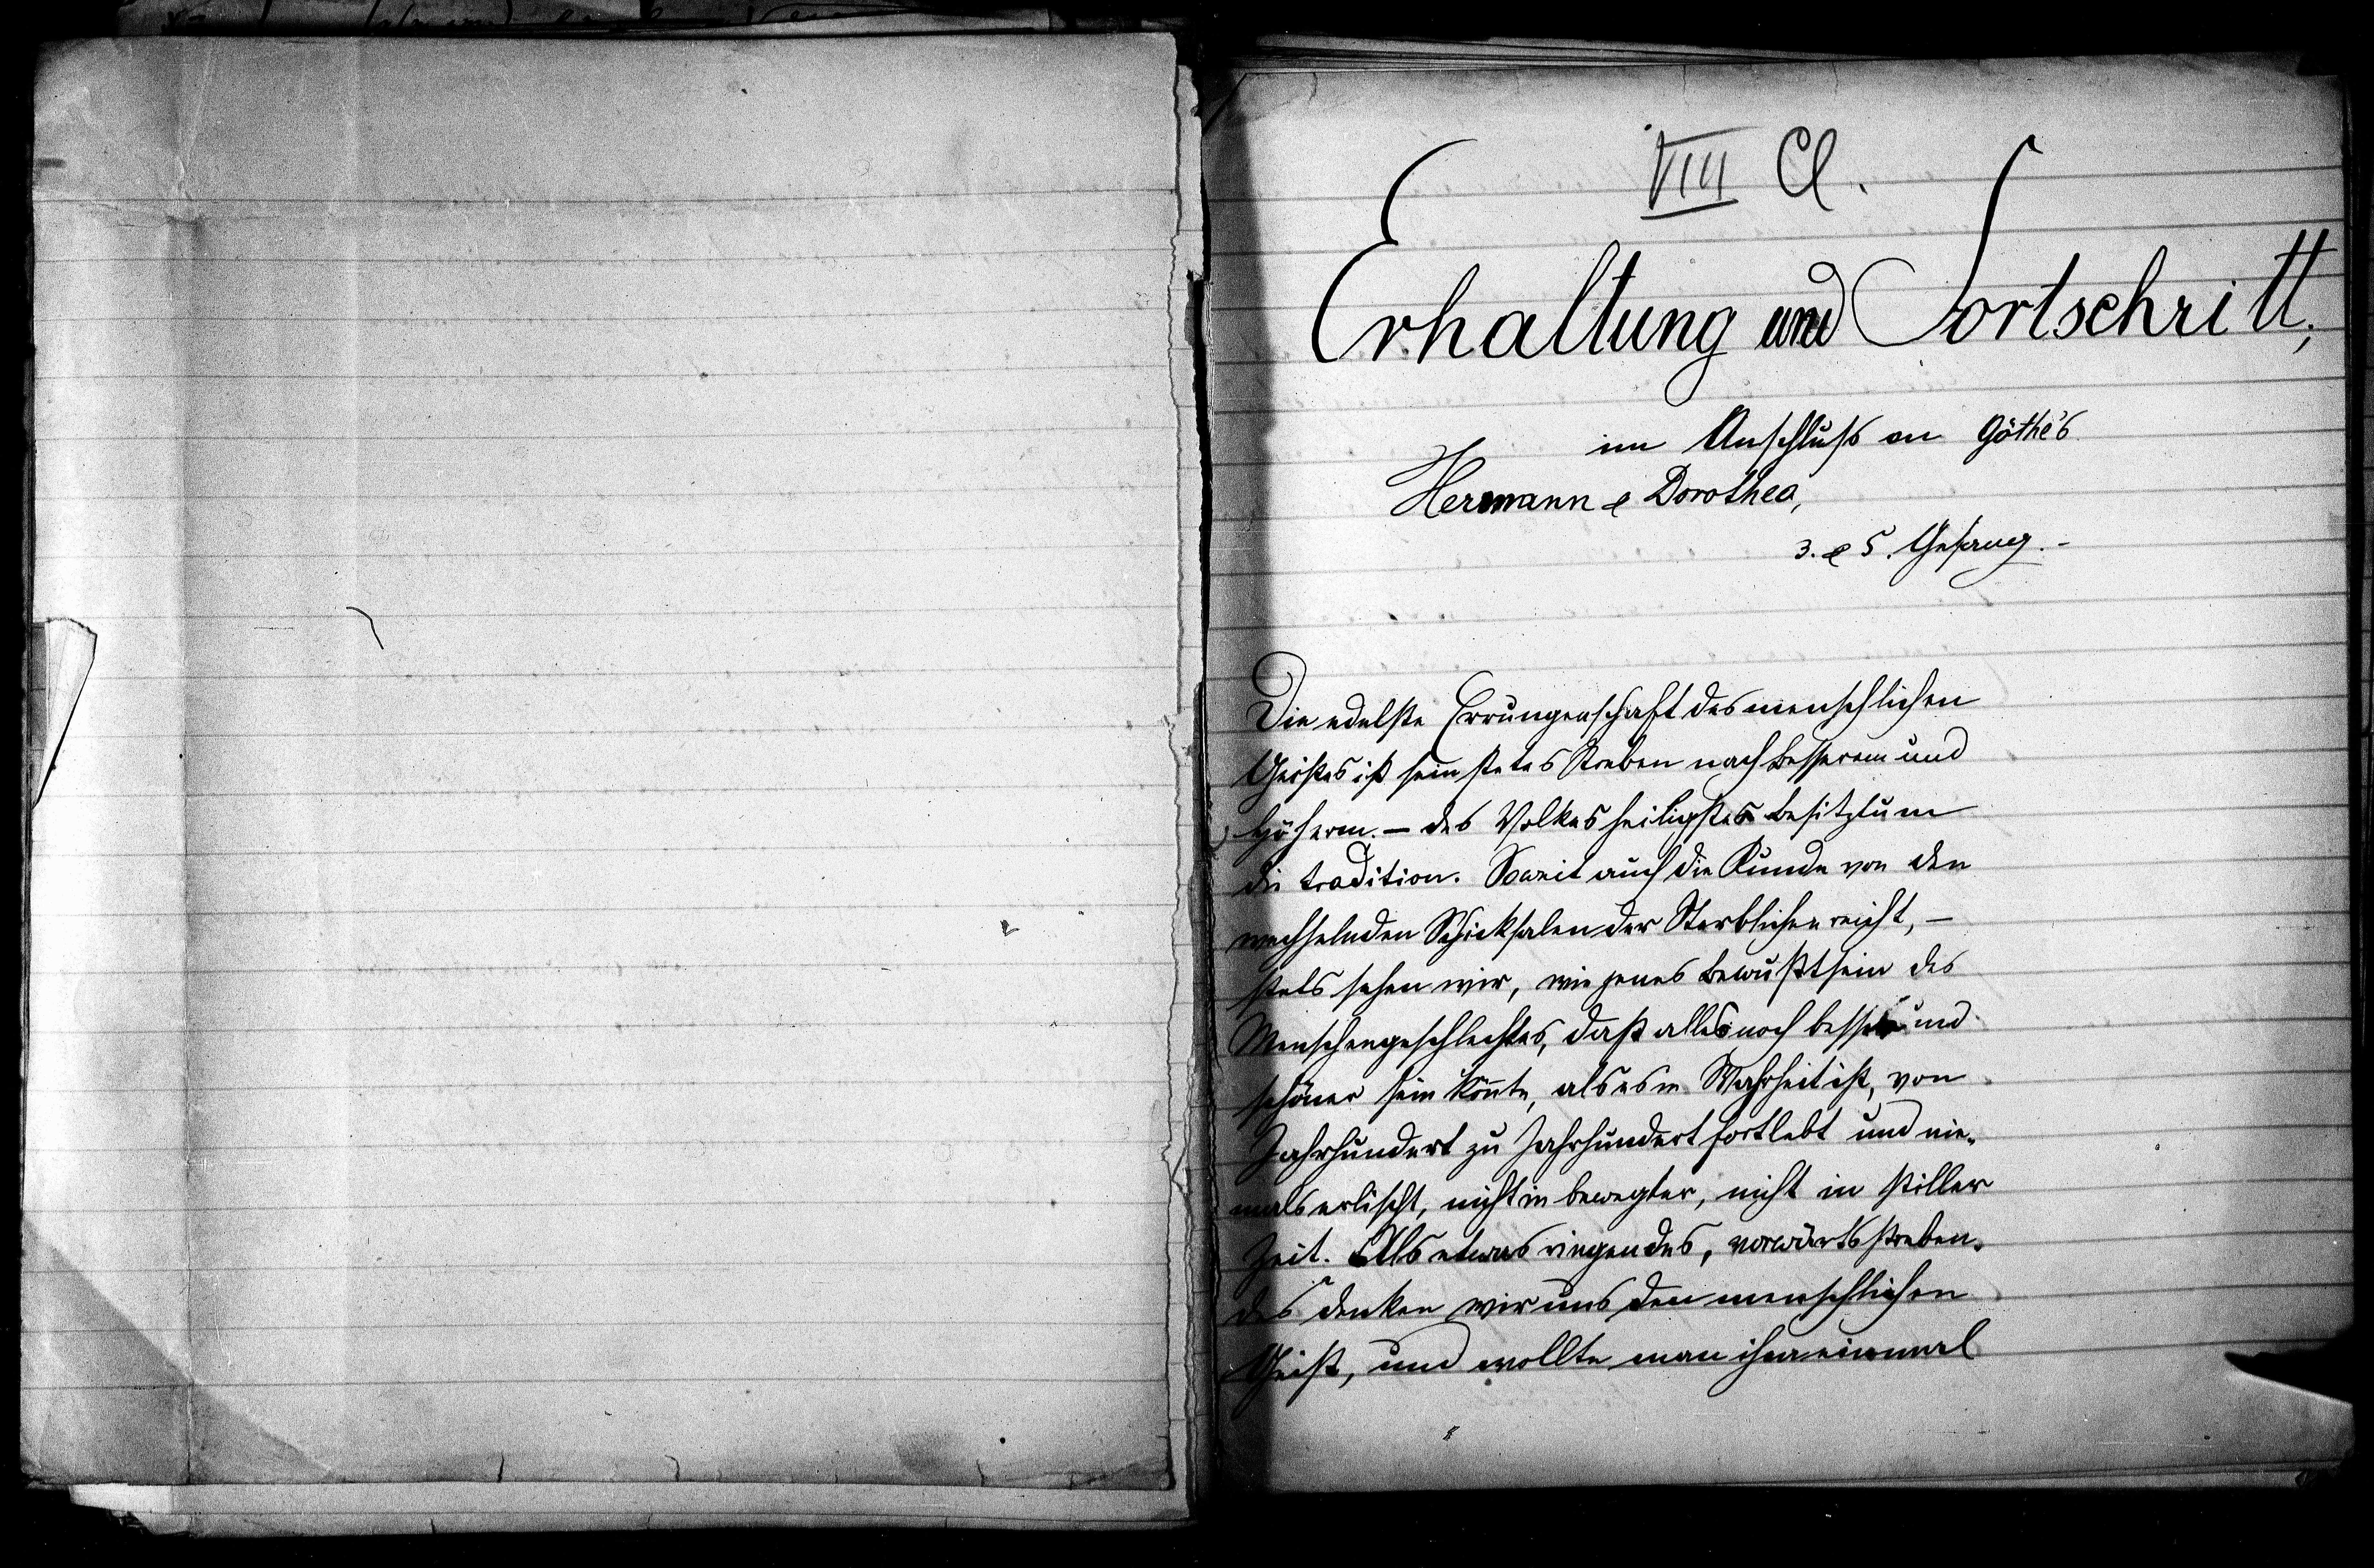 VIII Cl.
Erhaltung und Fortschritt,
im Anschluß an Göthe's
Hermann & Dorothea,
3. & 5. Gesang. -
Die edelste Errungenschaft des menschlichen
Geistes ist sein stetes Streben nach Besserem und
Höherem. – des Volkes heiligstes Besitztum
die Tradition. Soweit auch die Kunde von den
wechselnden Schicksalen der Sterblichen reicht, –
stets sehen wir, wie jenes Bewußtsein des
Menschengeschlechtes, daß alles noch besser und
schöner sein könnte, als es in Wahrheit ist, von
Jahrhundert zu Jahrhundert fortlebt und nie-
mals erlischt, nicht in bewegter, nicht in stiller
Zeit. Als etwas ringendes, vorwärtsstreben-
des denken wir uns den menschlichen
Geist, und wollte man ihm einmal